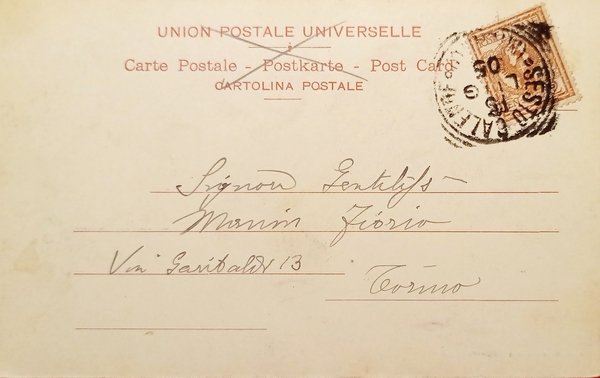 UNION POSTALE UNIVERSELLE
Carte Postale - Postkarte - Post Card
CARTOLINA POSTALE
SESTO CALENDE
Signora Gentiliss
Fiorio
Via Garibaldi 13
Torino